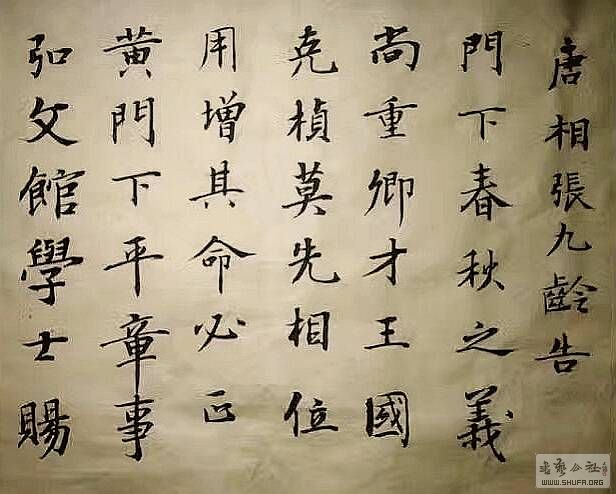 唐相張九齡告
門下春秋之義
尚重卿才王國
克楨莫先相位
用增其命必正
黄門下平章事
弘文館學士賜
WWW.SHUFA.ORG